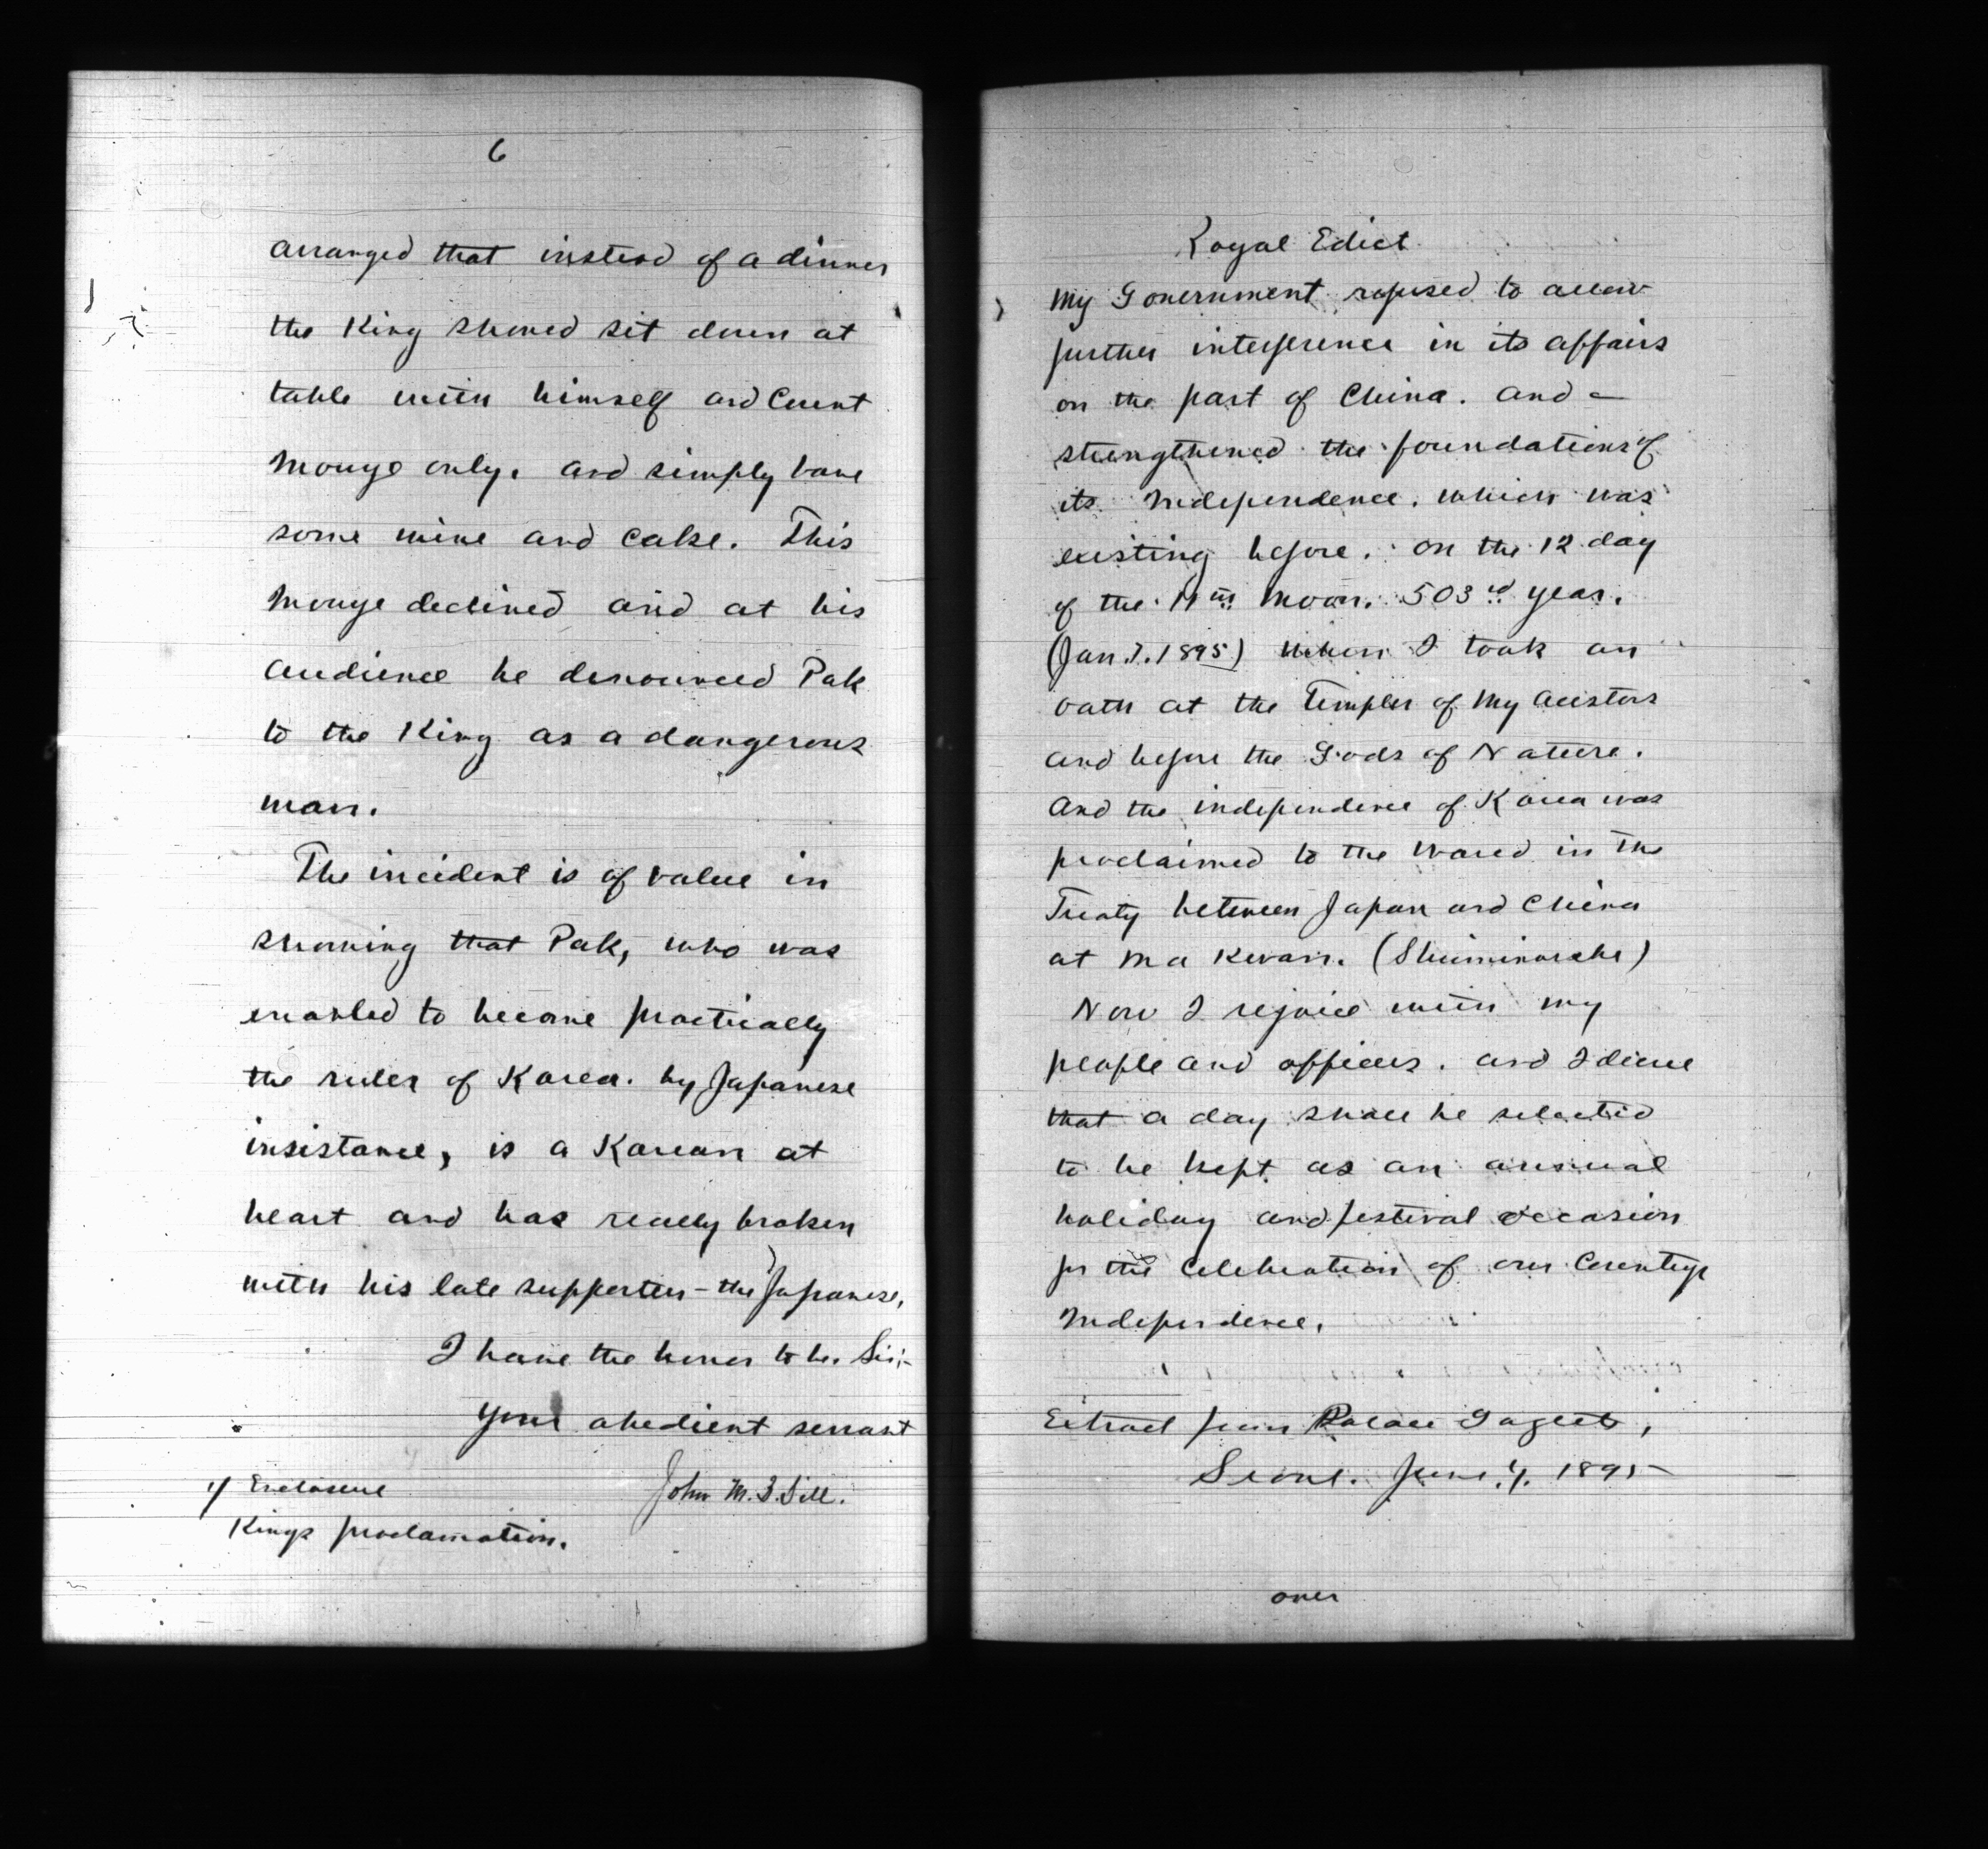 6
arranged that instead of a dinner
the King should sit down at
table with himself and Count
Mouye only, and simply have
some wine and cake. This
Mouye declined and at his
audience he denounced Pak
to the King as a dangerous
man.
The incident is of value in
showing that Pak, who was
enabled to become practically
the ruler of Korea. by Japanese
insistance, is a Korean at
heart and has really broken
with his late supporters - the Japanese,
I have the honor to be, Sir;-
Your obedient servant
John M. B. Sill.
1/ Enclosure
Kings proclamation.
Royal Edict
My Government refused to allow
further interference in its affairs
on the part of China. and
strengthened the foundations of
its Independence. which was
existing before. on the 12 day
of the 11th Moon. 503rd year.
(Jan. 7. 1895) When I took an
oath at the Temples of My Acestors
and before the Gods of Nature.
And the independence of Korea was
proclaimed to the World in the
Treaty between Japan and China
at Ma Kwan. (Shiminoseke)
Now I rejoice with my
people and officers. and I decree
that a day shall be selected
to be kept as an annual
holiday and festival occasion
for the Celebration of our Countrys
Independence.
Extract from Palace Gazette,
Seoul. June 4. 1895
over